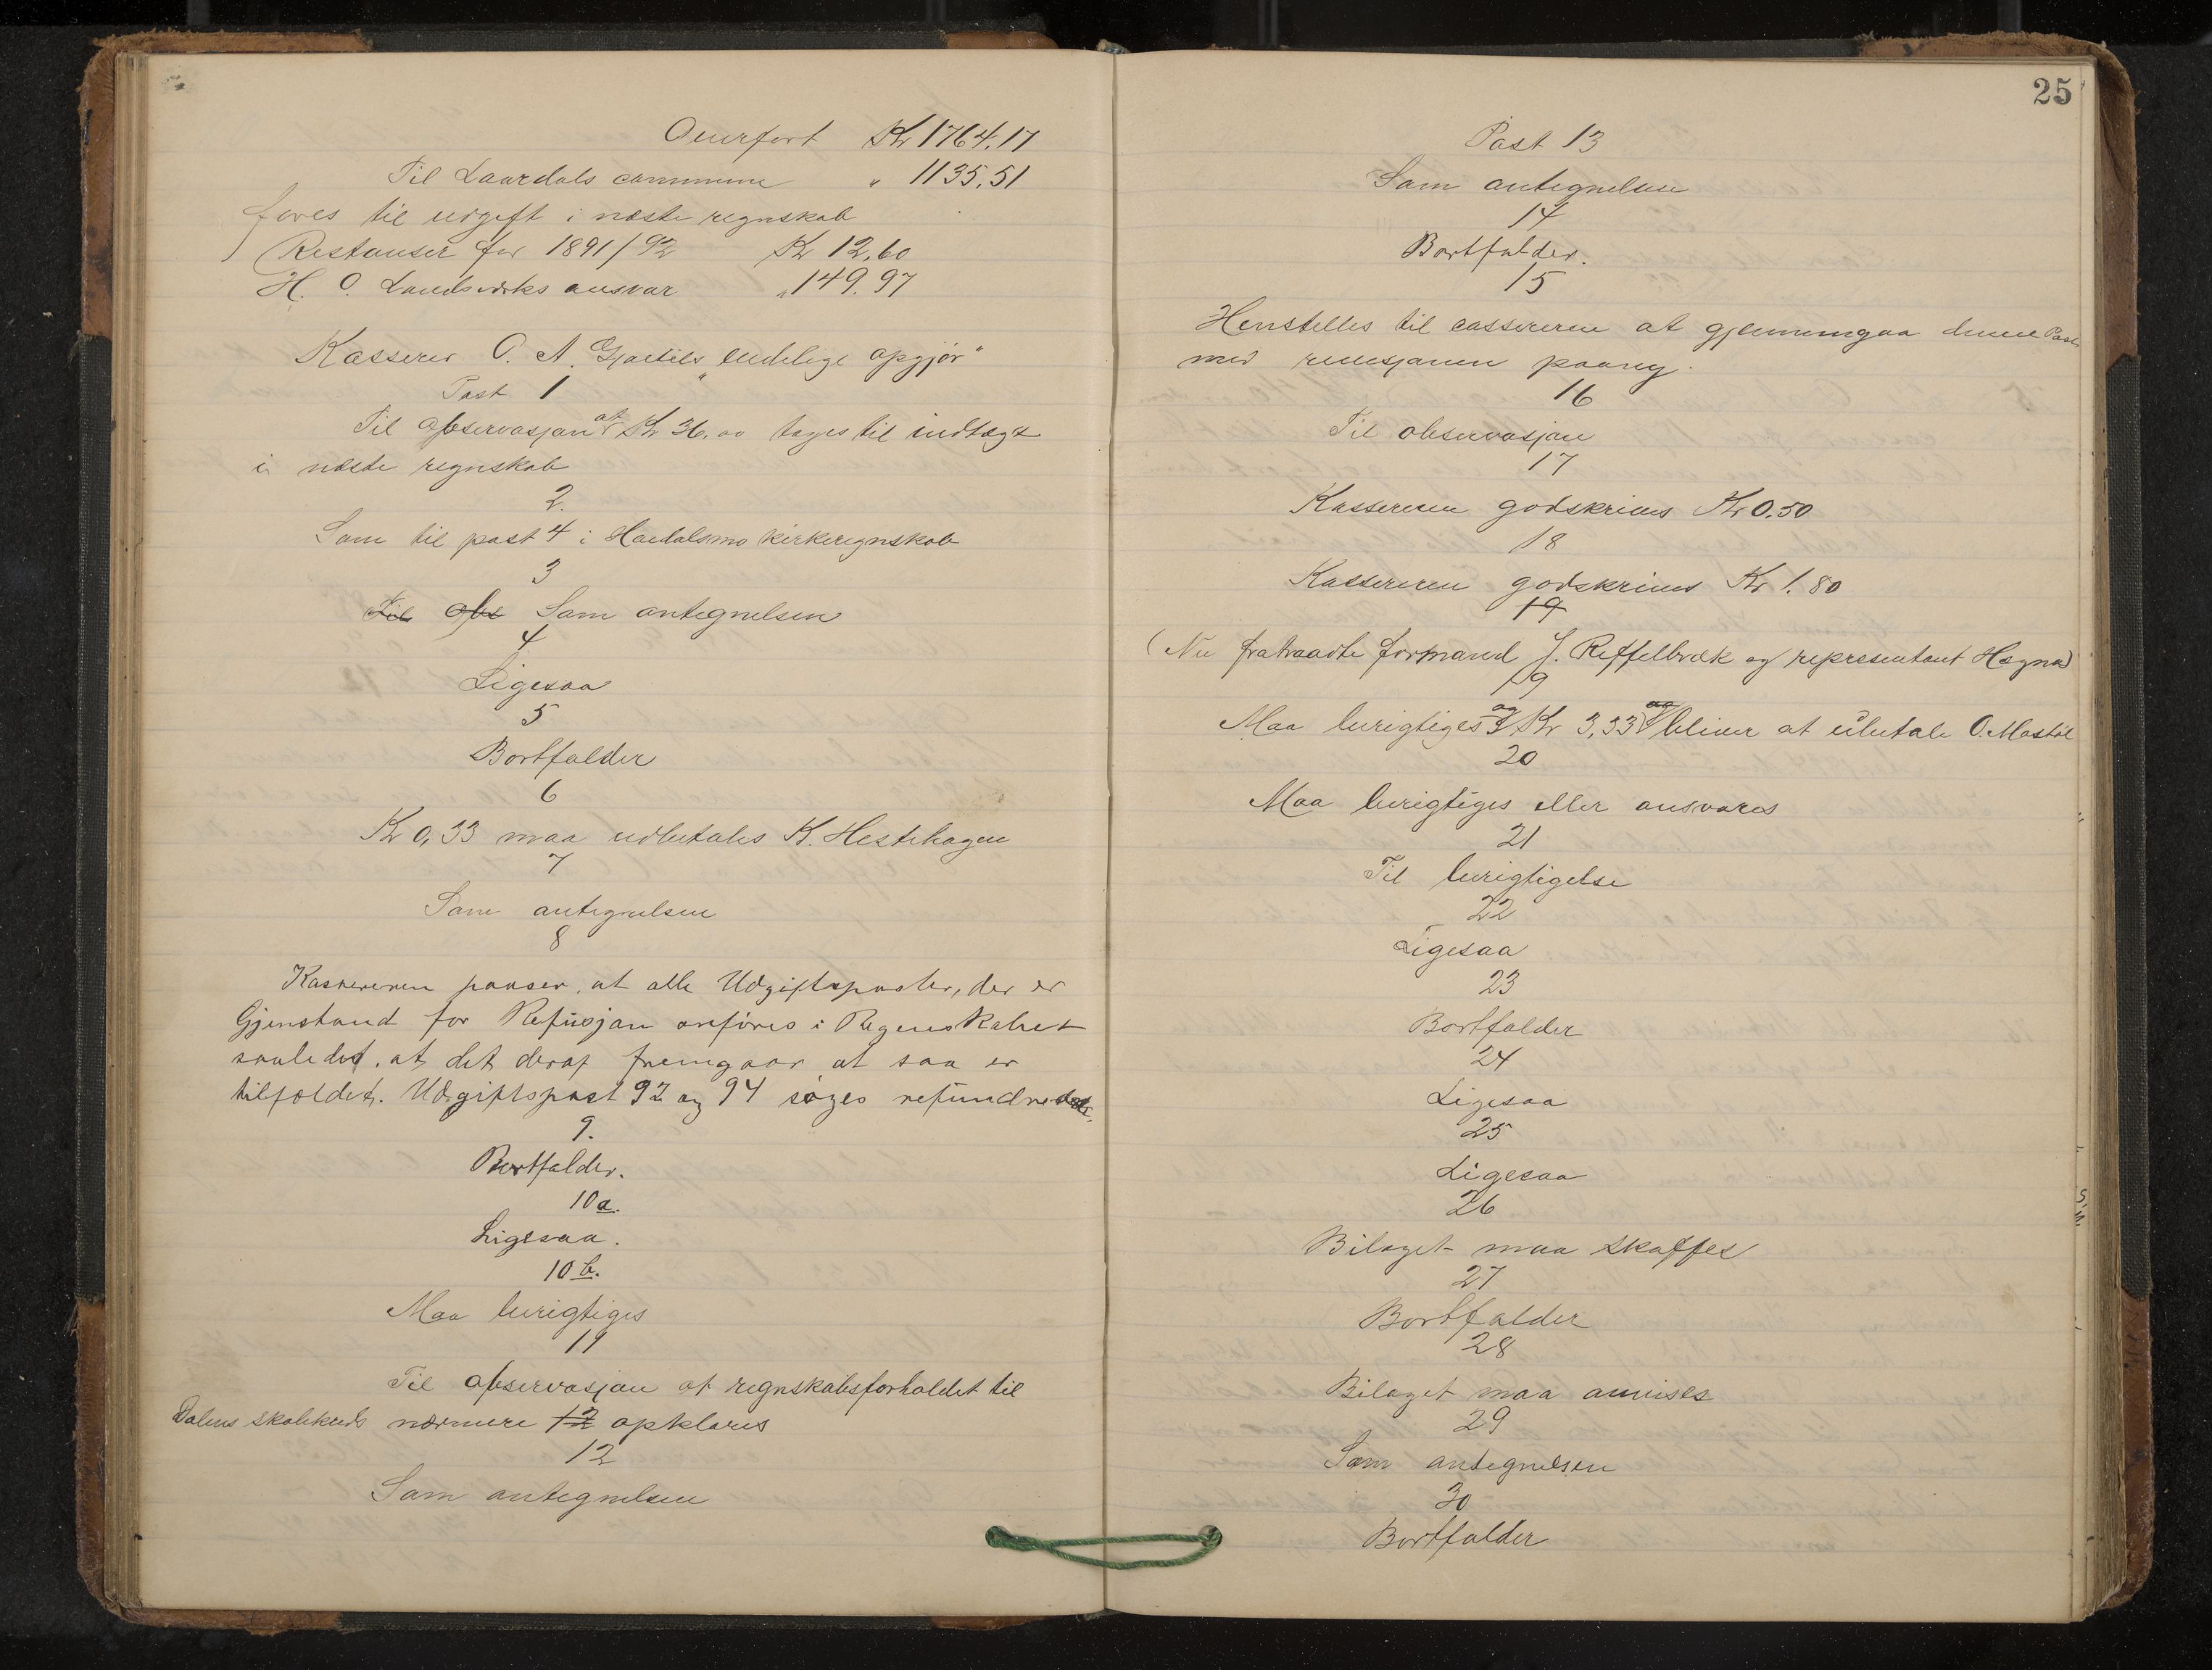 Overført Kr 1764.17
Til Laurdals commune " 1135.51
føres til udgift i næste regnskab
Restanser for 1891/92 Kr 12.60
H. O. Landsverks ansvar " 149.97
Kasserer O. A. Gjøtils "endelige opgjør"
Post 1
Til observasjon at Kr 36.00 tages til indtægt
i næste regnskab
2.
Som til post 4 i Høidalsmo kirkeregnskab
3
Til obs Som antegnelsen
4
Ligesaa
5
Bortfalder
6
Kr 0,33 maa udbetales K. Hestehagen
7
Som antegnelsen
8
Kassereren paaser, at alle Udgiftsposter, der er
Gjenstand for Refusjon anføres i Regnskabet
saaledes, at det deraf fremgaar at saa er
tilfældet. Udgiftspost 92 og 94 søges refundrede.
9.
Bortfalder.
10 a.
Ligesaa.
10 b.
Maa berigtiges
11
Til observasjon at regnskabsforholdet til
Dalens skolekreds nærmere 12 opklares
12
Som antegnelsen
25
Post 13
Som antegnelsen
14
Bortfalder.
15
Henstilles til cassereren at gjennemgaa denne Post
med revisjonen paany.
16
Til observasjon
17
Kassereren godskrives Kr 0.50
18
Kassereren godskrives Kr 1.80
19
(Nu fratraadte formand J. Reffelbæk og representant Høgna)
19
Maa berigtiges og Kr 3,33 og bliver at ubetale O. Mostøl
20
Maa berigtiges eller ansvares
21
Til berigtigelse
22
Ligesaa
23
Bortfalder
24
Ligesaa
25
Ligesaa
26
Bilaget maa skaffes
27
Bortfalder
28
Bilaget maa anvises
29
Som antegnelsen
30
Bortfalder